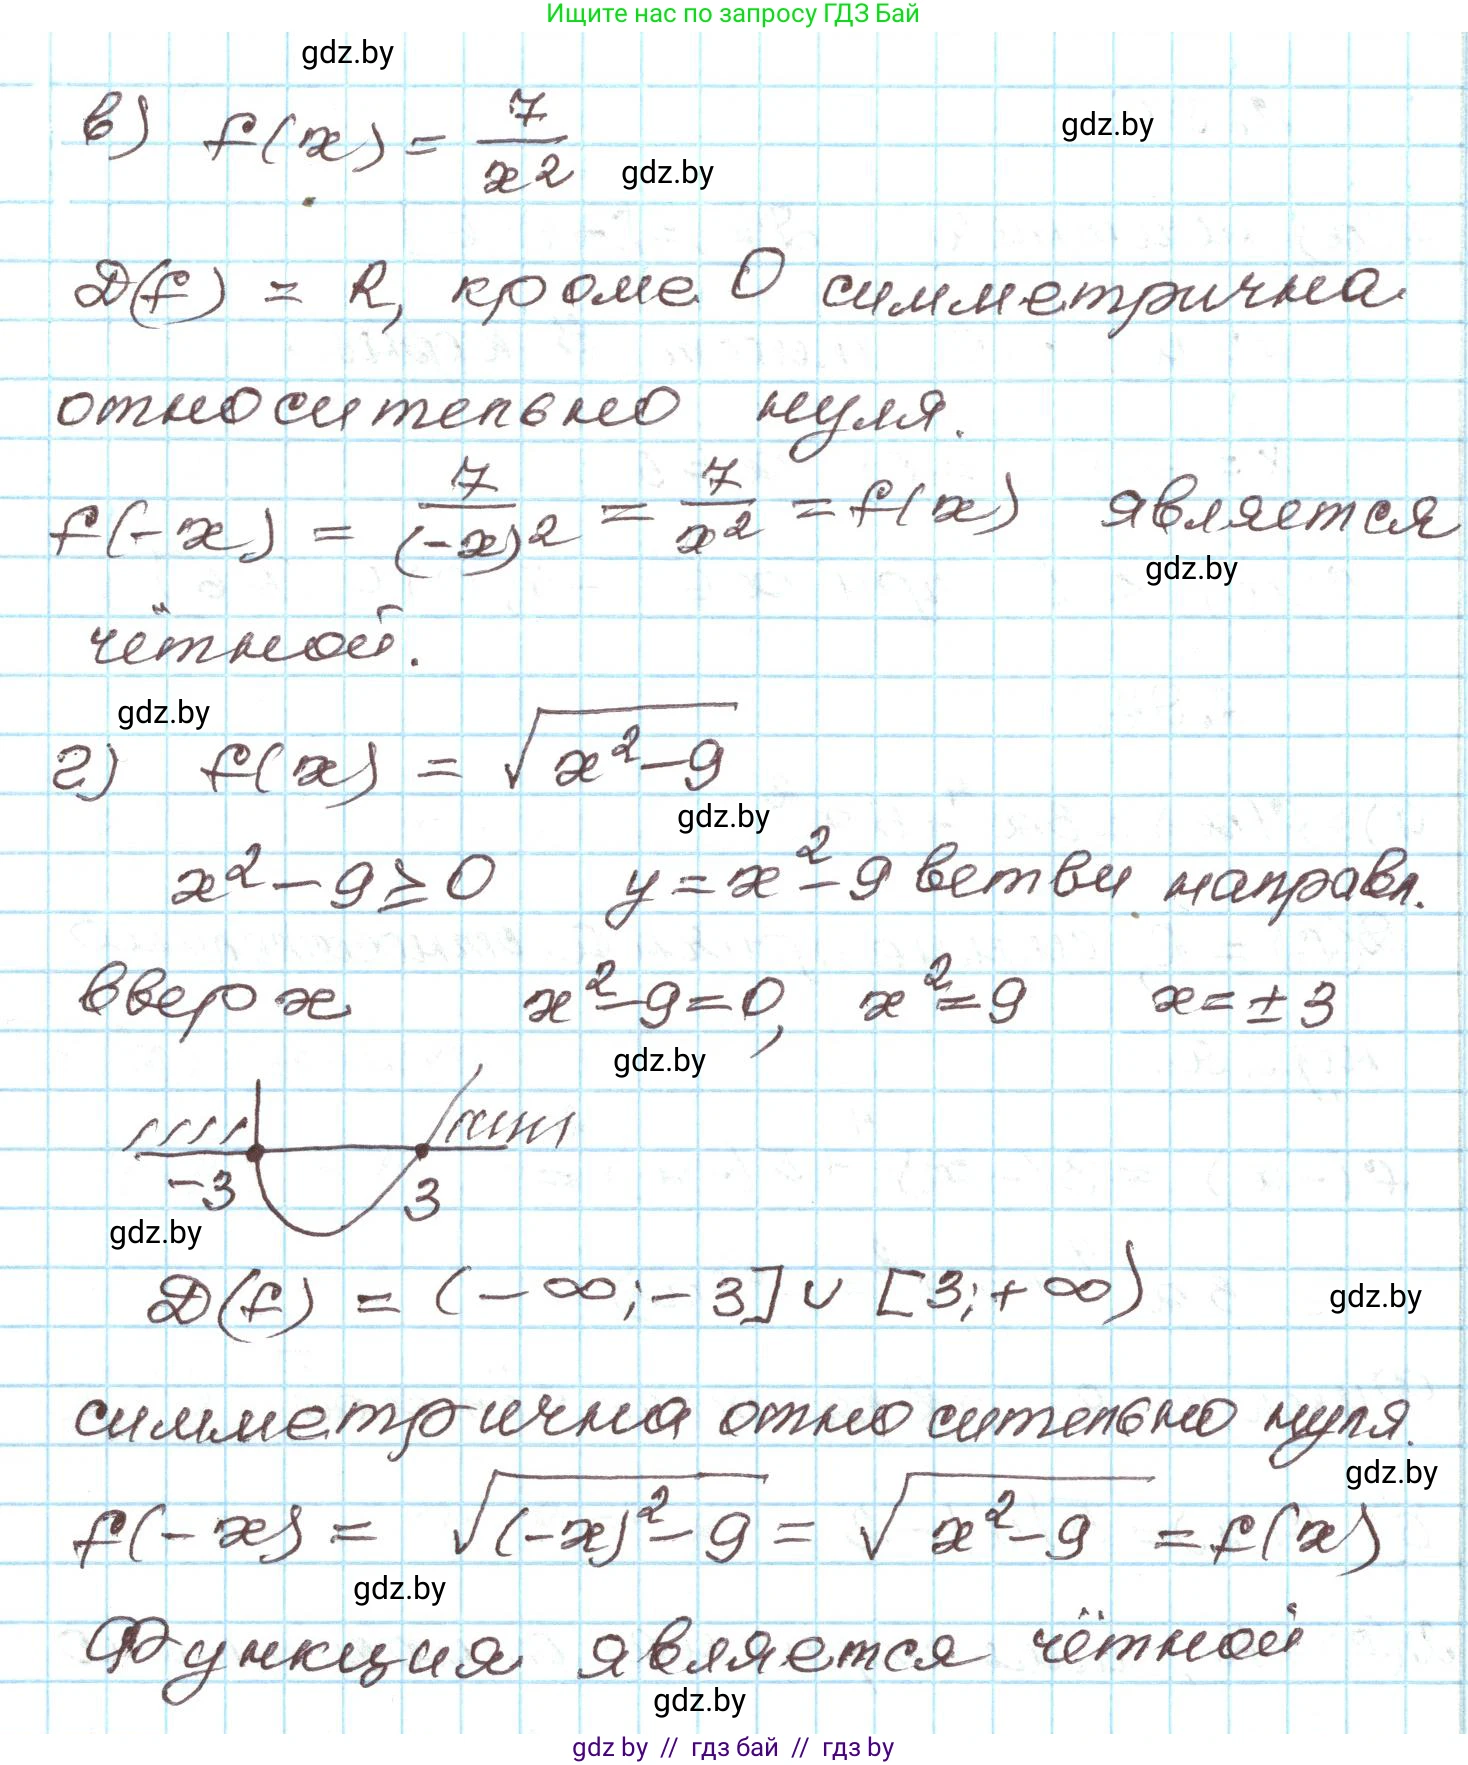 Ищите нас по запросу ГДЗ Бай
gdz.by
в) f(x) = 7/x²
gdz.by
gdz.by
D(f) = R, кроме 0 симметрична
относительно нуля.
f(-x) = 7/(-x)² = 7/x² = f(x) является
gdz.by
чётной.
gdz.by
г) f(x) = √(x²-9)
gdz.by
x²-9≥0 y=x²-9 ветви направл.
вверх x²-9=0, x²=9 x=±3
gdz.by
-3 3
gdz.by
D(f) = (-∞;-3]∪[3;+∞)
gdz.by
симметрична относительно нуля.
gdz.by
f(-x) = √((-x)²-9) = √(x²-9) = f(x)
gdz.by
Функция является чётной
gdz.by
gdz by // гдз бай // гдз by